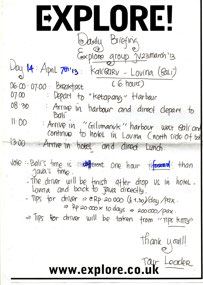 EXPLORE!
Daily Briefing
Explore group JV23march'13
Day 14: April 7th'13 Kalibaru - Lovina (Bali)
(6 hours)
06.00-07.00 : Breakfast
07.00 : Depart to "ketapang" Harbour
08.30 : Arrive in harbour and direct depart to Bali
11.00 : Arrive in "Gilimanuk" harbour West Bali and
continue to hotel in Lovina (north side of Bali
13.00 : Arrive in hotel and direct Lunch
Note : - Bali's time is one hour forward than
Java's time
- The driver will be finish after drop us in hotel
Lovina and back to Java directly
- Tips for driver = Rp 20.000 /day/pax
Rp 20.000 x 10 days = 200.000/pax
- Tips for driver will be taken from "Tips kitty"
Thank you!!
Tour Leader
www.explore.co.uk